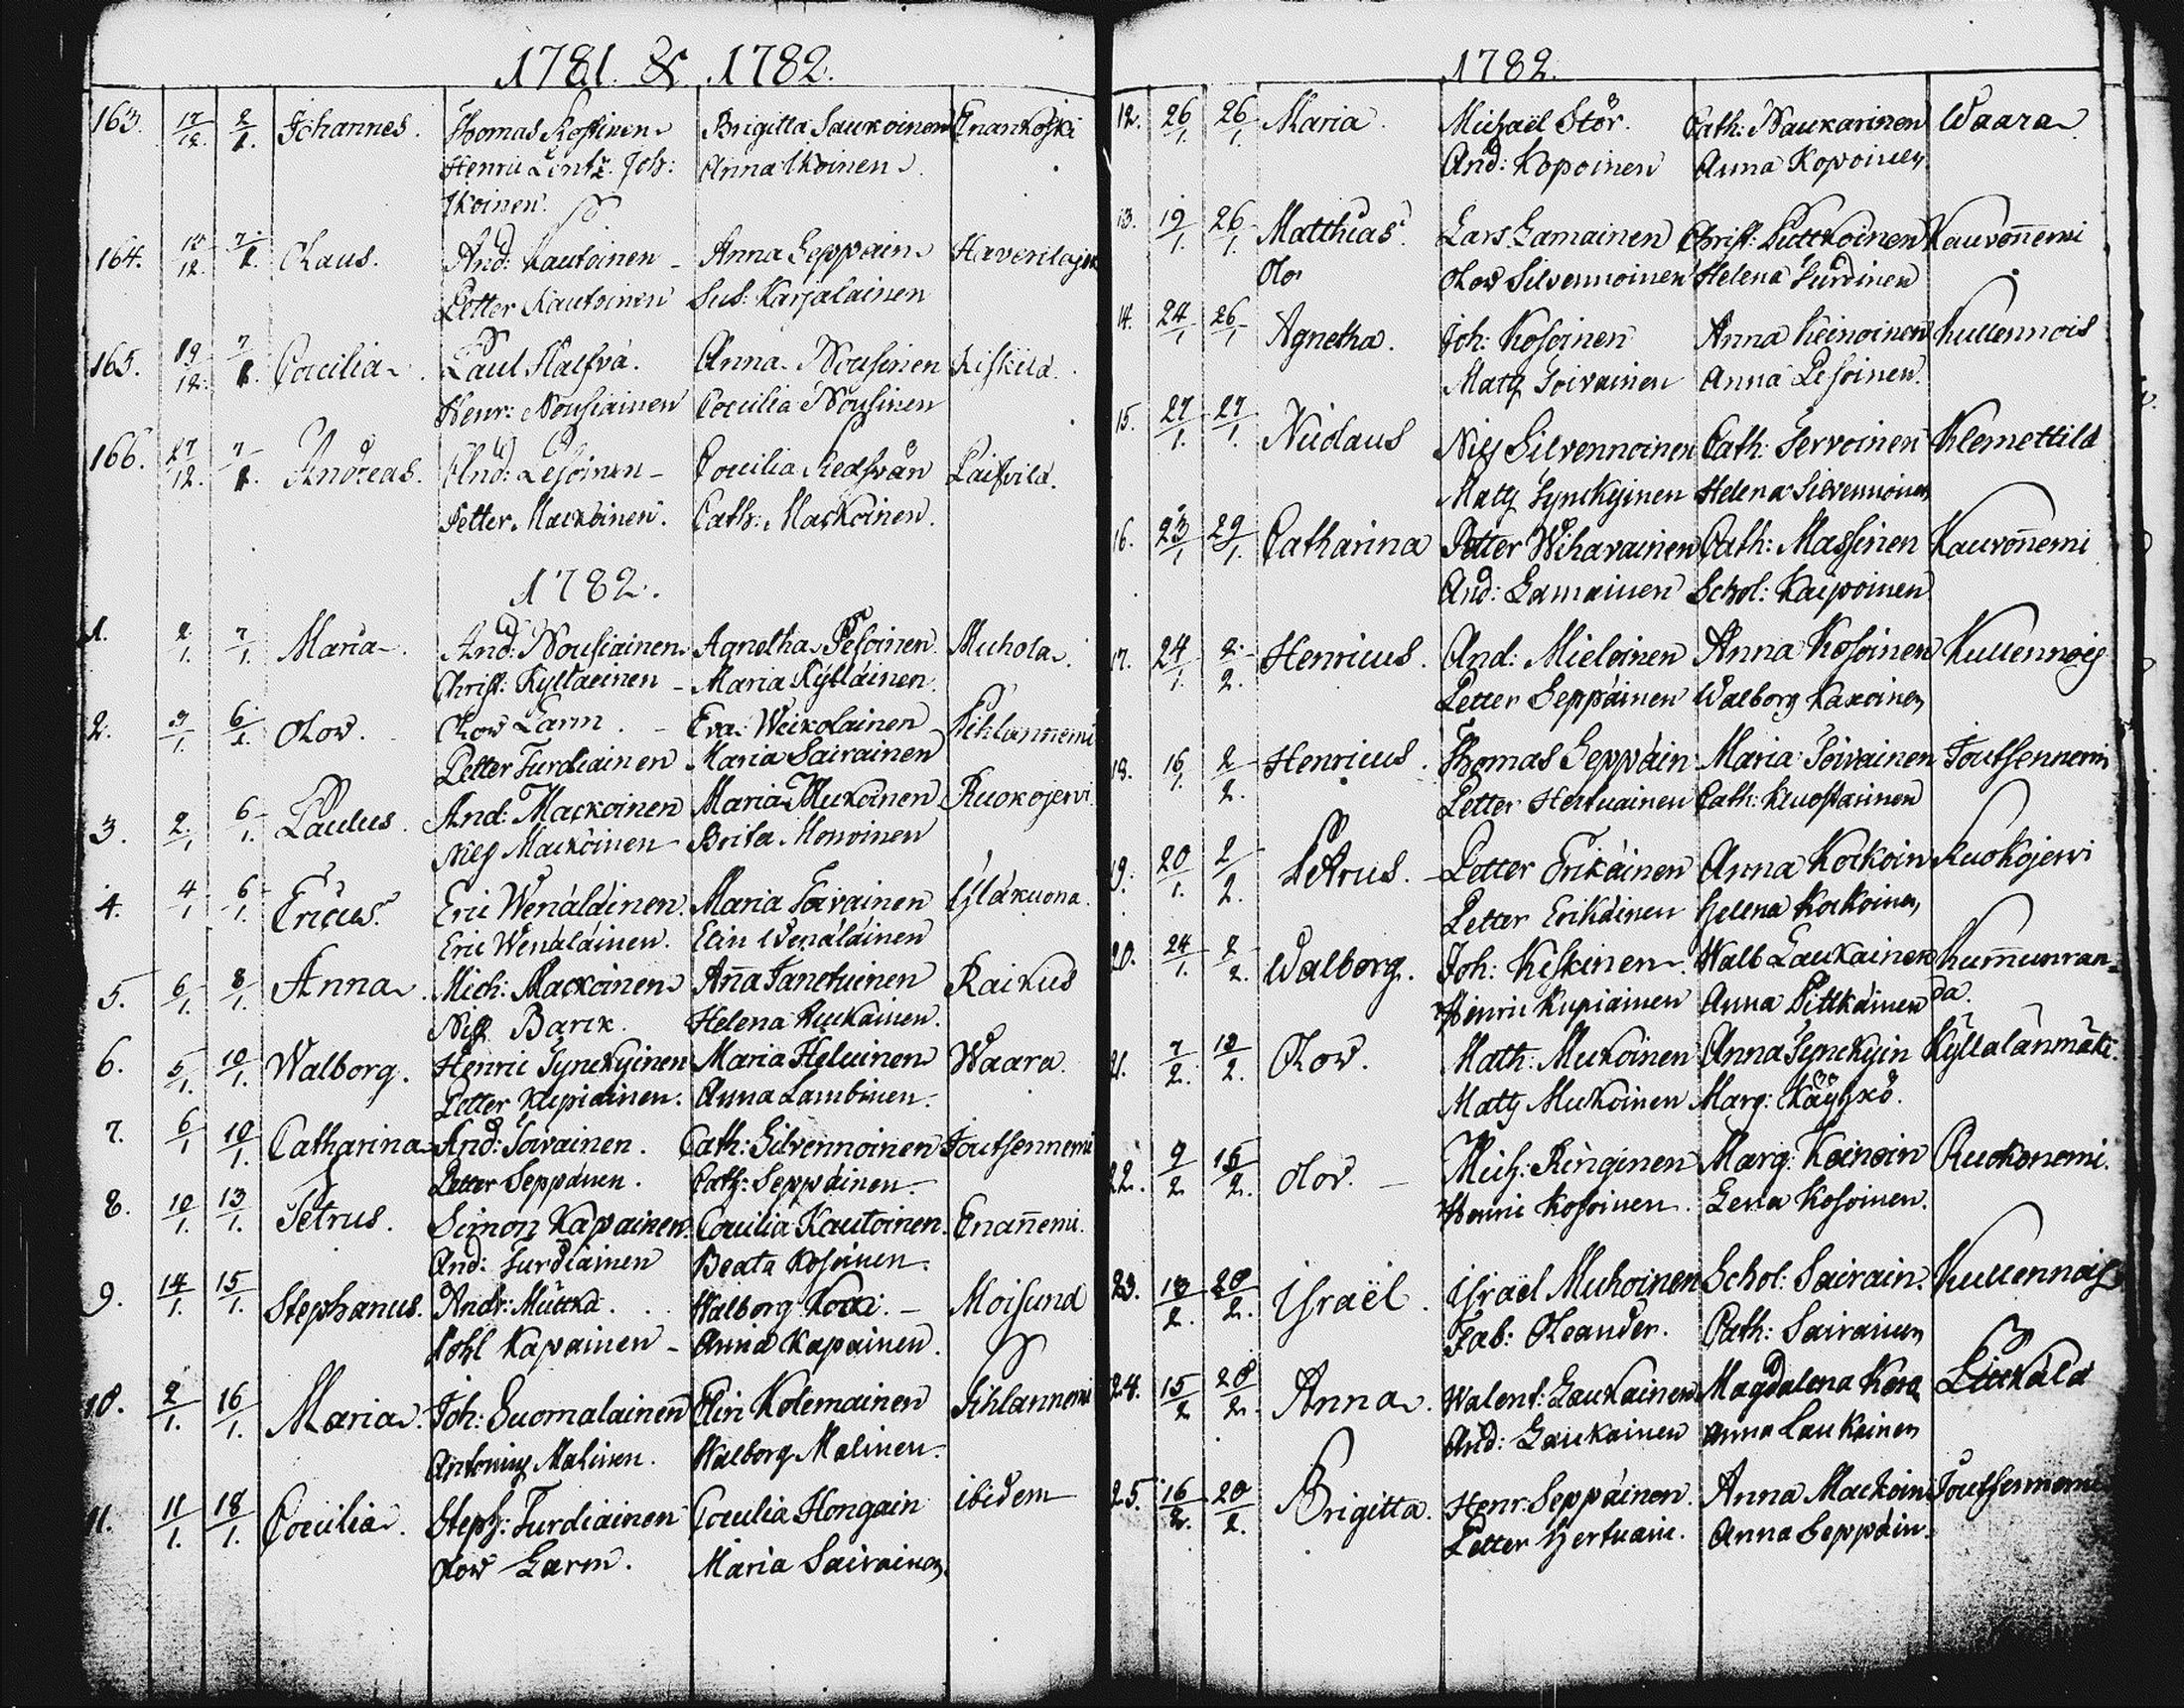 1781. & 1782.
163. 17/12. 2/1. Johannes. Thomas Brigitta Saukoinen Enankoski
Henric Lentz. Joh: Anna Ikoinen.
Ikoinen.
164. 12. 7/1. Olaus. And: Kautoinen - Anna Seppäin
Petter Kautoinen Sus: Karjalainen
165. 19/12. 7/1. Cæcilia. Paul Halfvá. Anna Nousinen Kiskilä.
Henr: Nousiainen Cæcilia Nousinen
166. 27/12. 7/1. Andreas. And: Pesoinen - Cæcilia
Petter Mackoinen. Cath: Mackoinen.
1782.
1. 2/1. 7/1. Maria. And: Nousiainen Agnetha Pesoinen. Muhola.
Christ: - Maria Kylläinen.
2. 3/1. 6/1. Olov. Olov - Eva: Weikolainen Pihlannemi
Petter Turdiainen Maria Sairainen
3. 2/1 6/1. Paulus. And: Mackoinen Maria Mukoinen Ruokojervi.
Nils Mackoinen - Brita Monoinen
4. 4/1 6/1. Ericus. Eric Wenäläinen. Maria Toivainen
Eric Wenäläinen. Elin Wenäläinen
5. 6/1 8/1. Anna. Mich: Mackoinen Aña Raikus
Nils Barck. Helena Kuckainen.
6. 5/1. 10/1. Walborg. Henric Tynckyinen Maria Heluinen Waara.
Petter Kupiainen. Anna Lambinen.
7. 6/1 10/1. Catharina And: Toivainen. Cath: Silvennoinen Joutsennemi
Petter Seppänen. Cath: Seppäinen.
8. 10/1. 13/1. Petrus. Simon Kapainen. Cæcilia Kautoinen. Enañemi.
And: Turdiainen Beata Kosoinen.
9. 14/1. 15/1. Stephanus. Andr: Muttka. Walborg - Moisund
Pohl Kapainen - Anna Kapainen.
10. 2/1. 16/1. Maria. Joh: Suomalainen Elin Kolemainen Pihlannemi
Antonius Malinen. Walborg Malinen.
11. 11/1. 18/1. Cæcilia. Steph: Turdiainen Cæcilia Hongain ibidem
Olow Maria Sairainen
1782.
12. 26/1. 26/1. Maria. Michaël Stör. Cath: Naukarinen Waara
And: Kopoinen Anna Kopoinen
13. 19/1. 26/1. Matthias. Lars Lamainen Christ: Puttkoinen Kauvoñemi
Olov Silvennoinen Helena Turdinen
14. 24/1 26/1 Agnetha. Joh: Kosoinen Anna Keinoinen Kullennois
Matts Toivainen Anna Pesoinen.
15. 27/1. 27/1. Nicolaus Nils Silvennoinen Cath: Tervoinen Klemettilä
Matts Tynckyinen Helena Silvennoinen
16. 23/1 29/1. Catharina Petter Wihavainen Cath: Massinen Kauvoñemi
And: Lamainen Schol: Kaipoinen
17. 24/1. 2/2. Henricus. And: Mieloinen Anna Kosoinen Kullennois
Petter Seppäinen Walborg Kaxoinen
18. 16/1. 2/2. Henricus. Thomas Seppäin: Maria Toivainen Joutsennemi
Petter Hertuainen Cath:
19. 20/1. 2/2. Petrus. - Petter Erikäinen Anna Kockoin Ruokojervi
Petter Erikäinen Helena Kockoinen
20. 24/1. 2/2. Walborg. Joh: Kiskinen. Walb Laukainen Kummunran-
Henric Kupiainen Anna Pittkäinen da.
21. 7/2. 12/2. Olov. Math: Mukoinen Anna Tynckyin Kyllälänmäki.
Matts Mukoinen Marg: Käyhkö.
22. 9/2 16/2. Olov. - Mich: Ringinen Marg: Keinoin Ruokonemi.
Henric Kosoinen. Lena Kosoinen.
23. 13/2. 20/2. Israël. Israël Muhoinen Schol: Sairain. Kullennois
Fab: Oleander. Cath: Sairainen
24. 15/2 20/2. Anna. Walent: Laukainen Magdalena
And: Laukainen Anna Laukainen
25. 16/2. 20/2. Brigitta. Henr: Seppäinen. Anna Mackoin Joutsennemi
Petter Hertuain. Anna Seppäin.